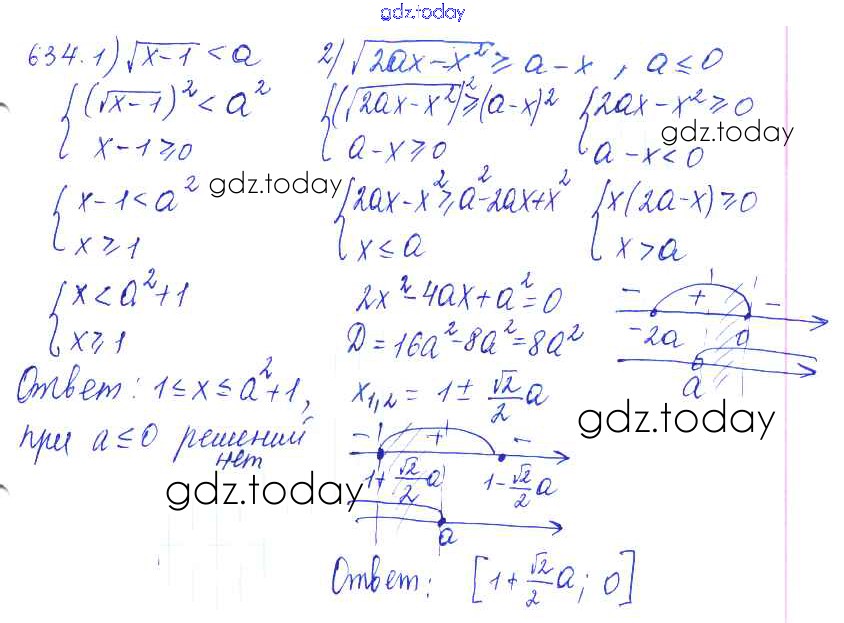 gdz.today
634. 1) √(x-1) < a
{ (√(x-1))² < a²
x-1 ≥ 0
gdz.today
{ x-1 < a²
x ≥ 1
{ x < a²+1
x ≥ 1
Ответ: 1 ≤ x ≤ a²+1,
при a ≤ 0 решений
нет
gdz.today
2) √(2ax-x²) ≥ a-x, a ≤ 0
{ (√(2ax-x²))² ≥ (a-x)²
a-x ≥ 0
{ 2ax-x² ≥ a²-2ax+x²
x ≤ a
2x²-4ax+a²=0
D = 16a²-8a² = 8a²
x₁,₂ = 1 ± √2/2 a
- + -
1+√2/2 a 1-√2/2 a
a
{ 2ax-x² ≥ 0
gdz.today
a-x < 0
{ x(2a-x) ≥ 0
x > a
- + -
-2a 0
a
gdz.today
Ответ: [1+√2/2 a; 0]